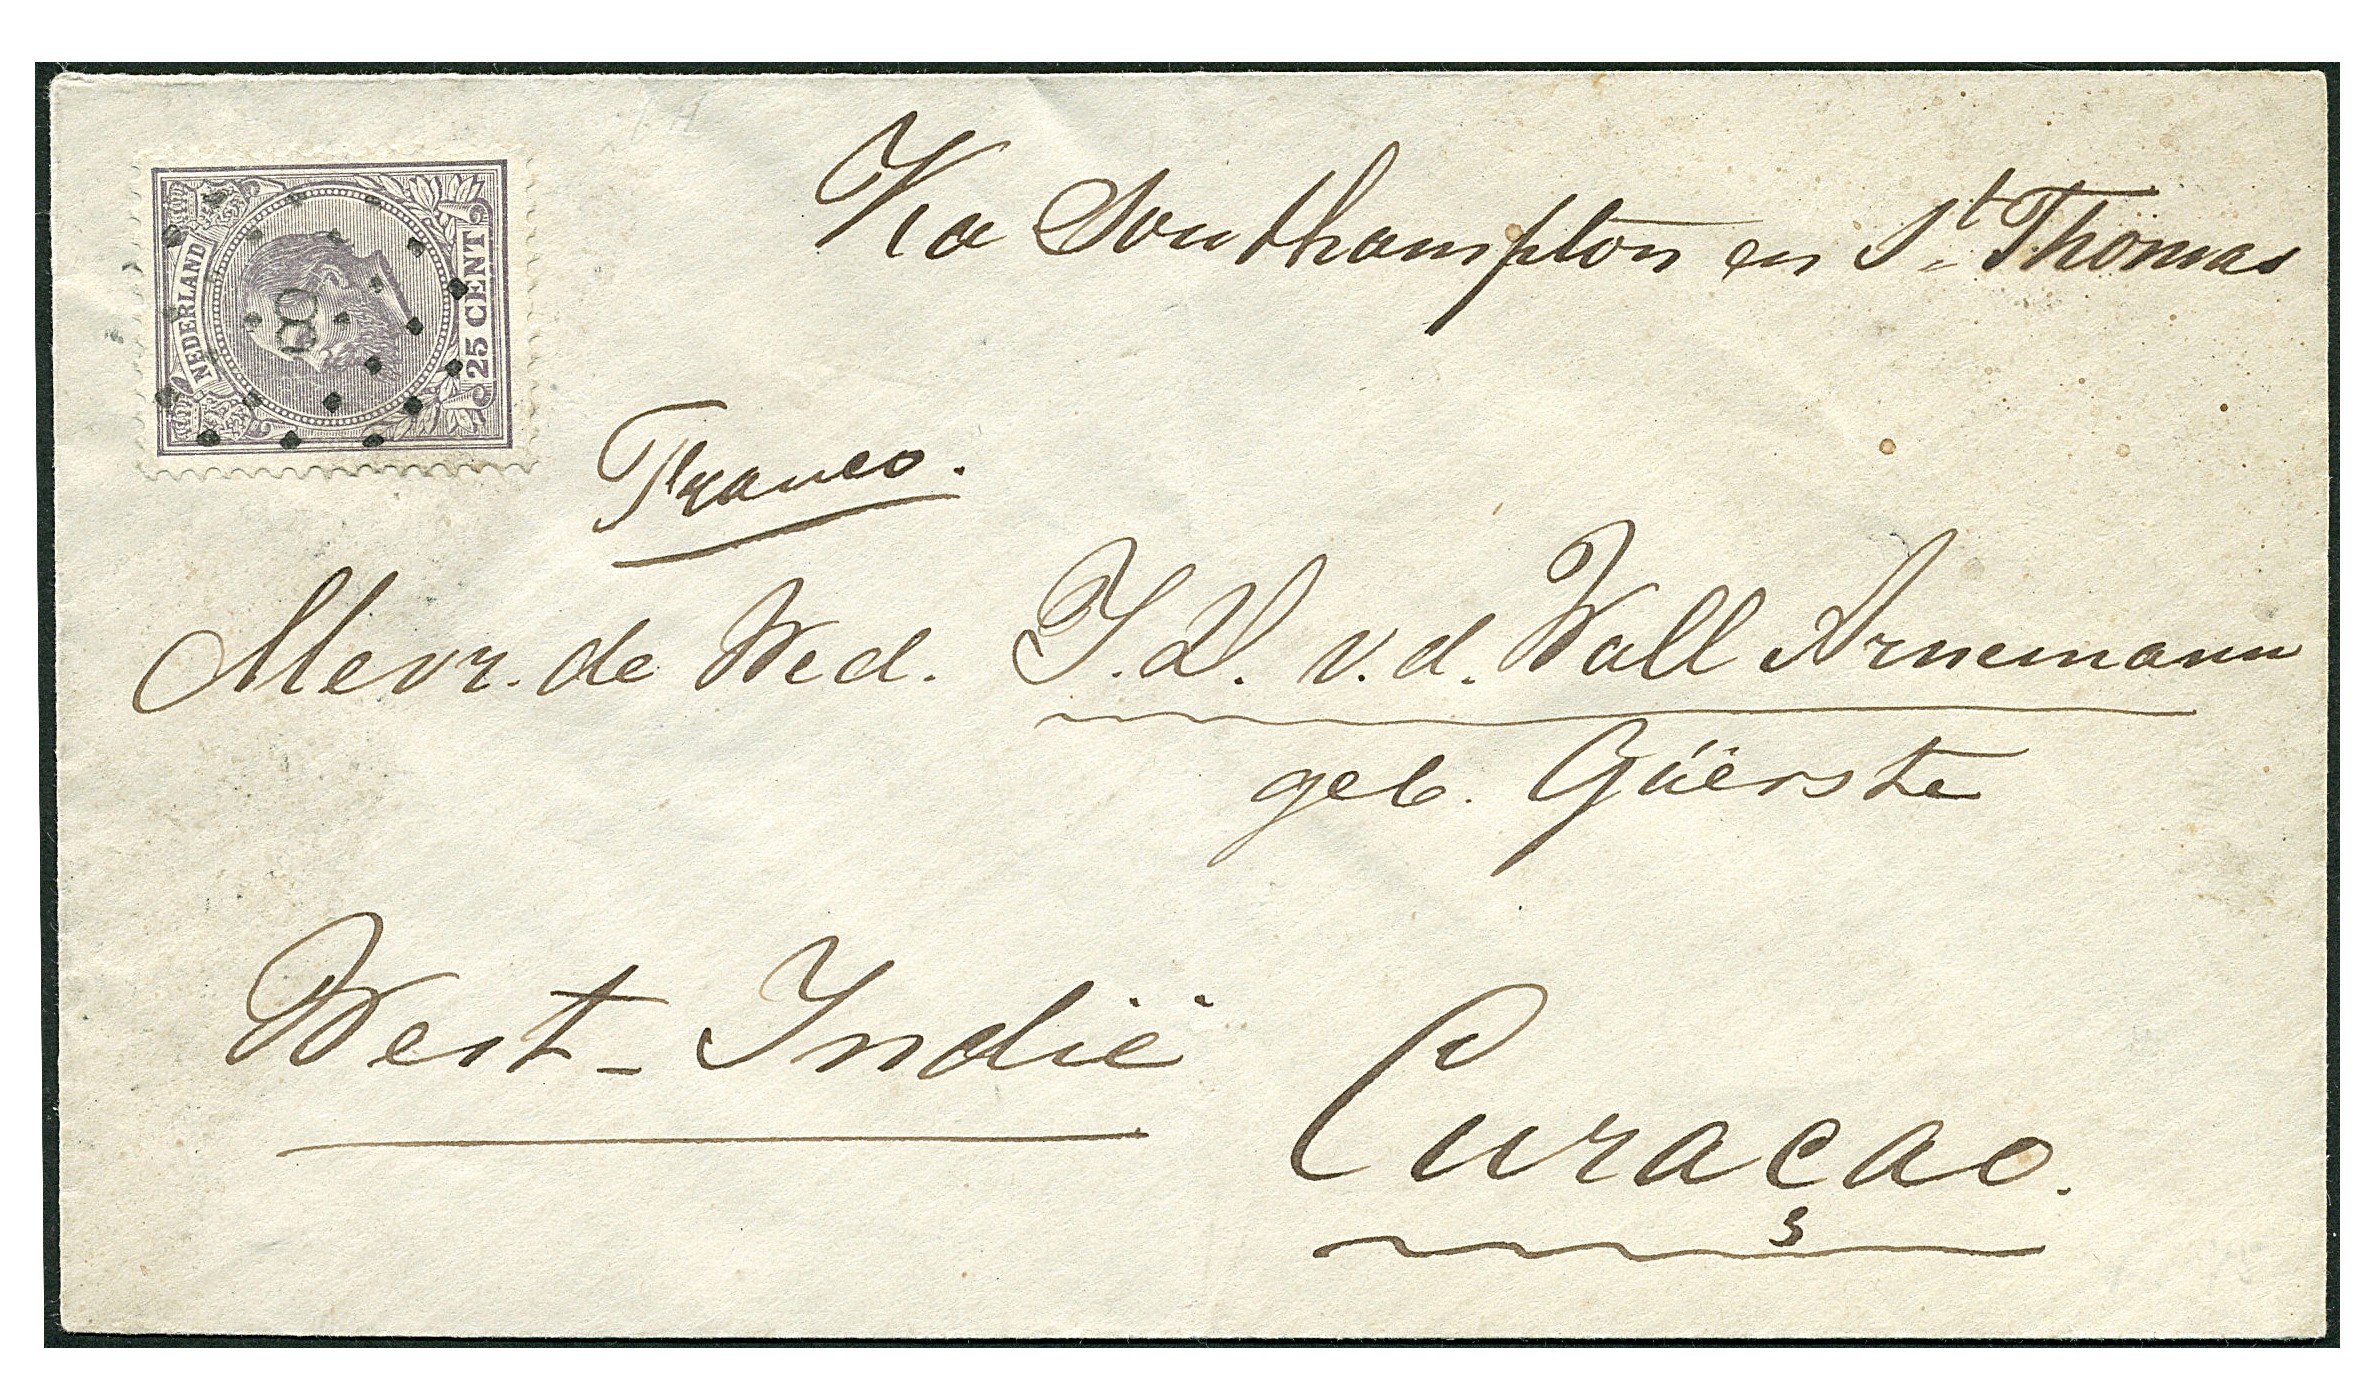 Via Southampton en St. Thomas
NEDERLAND
25 CENT
Franco.
Mevr. de Wed. J. H. v.d. Wall Arnemann
geb. Güerste
West-Indië
Curaçao.